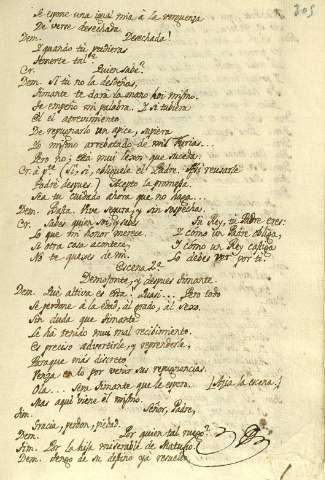 305
Se espone una igual mia à la verguenza
De verse desechada
Dem. Desechada!
Y quando tu pudieras
Temerte tal?
Cr. Quien sabe?
Dem. Si tu no la desdeñas,
Timante te dará la mano hoi mismo.
Se empeño mi palabra. Y si tubiera
El el atrevimiento
De repugnarlo un apice, supiera
Yo mismo arrebatado de mil furias...
Pero no; està mui lexos que suceda.
Cr. à pte. (Si, si, obliguela el Padre. Asi reusarle
Podrè despues.) Acepto la promesa.
Sea tu cuidado ahora que no haga...
Dem. Basta. Vive segura, y sin sospechas.
Cr. Sabes quien soi, y sabes
Lo que mi honor merece.
Si otra cosa acontece,
No te quexes de mi.
Tu Rey, tu Padre eres:
Y como un Padre obliga,
Y como un Rey castiga
Lo debes por ti.
Escena 2ª
Demofonte, y despues Timante
Dem. Què altiva es esta! Quasi... Pero todo
Se perdone à la edad, al grado, al sexo.
Sin duda que Timante
Le há tenido mui mal recibimiento.
Es preciso advertirle, y reprenderle,
Paraque mas discreto
Ponga en lo por venir sus repugnancias.
Ola... Sera Timante que le espero.
Mas aqui viene el mismo.
Tim. Señor, Padre,
Gracia, perdon, piedad.
Dem. Por quien tal ruego?
Tim. Por la hija miserable de Matusio.
Dem. Tengo de su destino yà resuelto